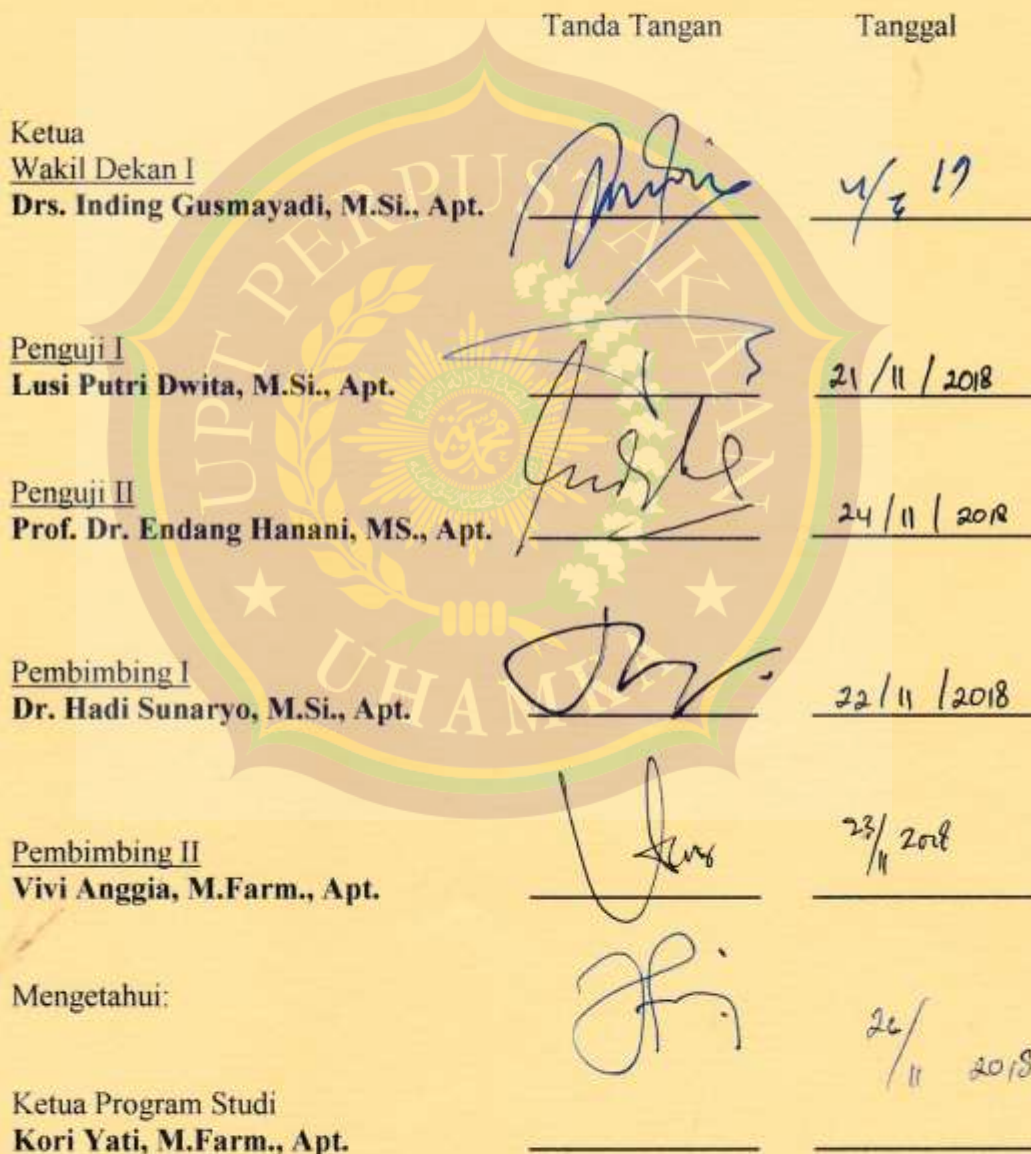 Tanda Tangan Tanggal
Ketua
Wakil Dekan I
Drs. Inding Gusmayadi, M.Si., Apt.
Penguji I
Lusi Putri Dwita, M.Si., Apt. 21/11/2018
Penguji II
Prof. Dr. Endang Hanani, MS., Apt. 24/11/2018
Pembimbing I
Dr. Hadi Sunaryo, M.Si., Apt. 22/11/2018
Pembimbing II
Vivi Anggia, M.Farm., Apt. 23/11 2018
Mengetahui:
Ketua Program Studi
Kori Yati, M.Farm., Apt.
UPT PERPUSTAKAAN
UHAMKA